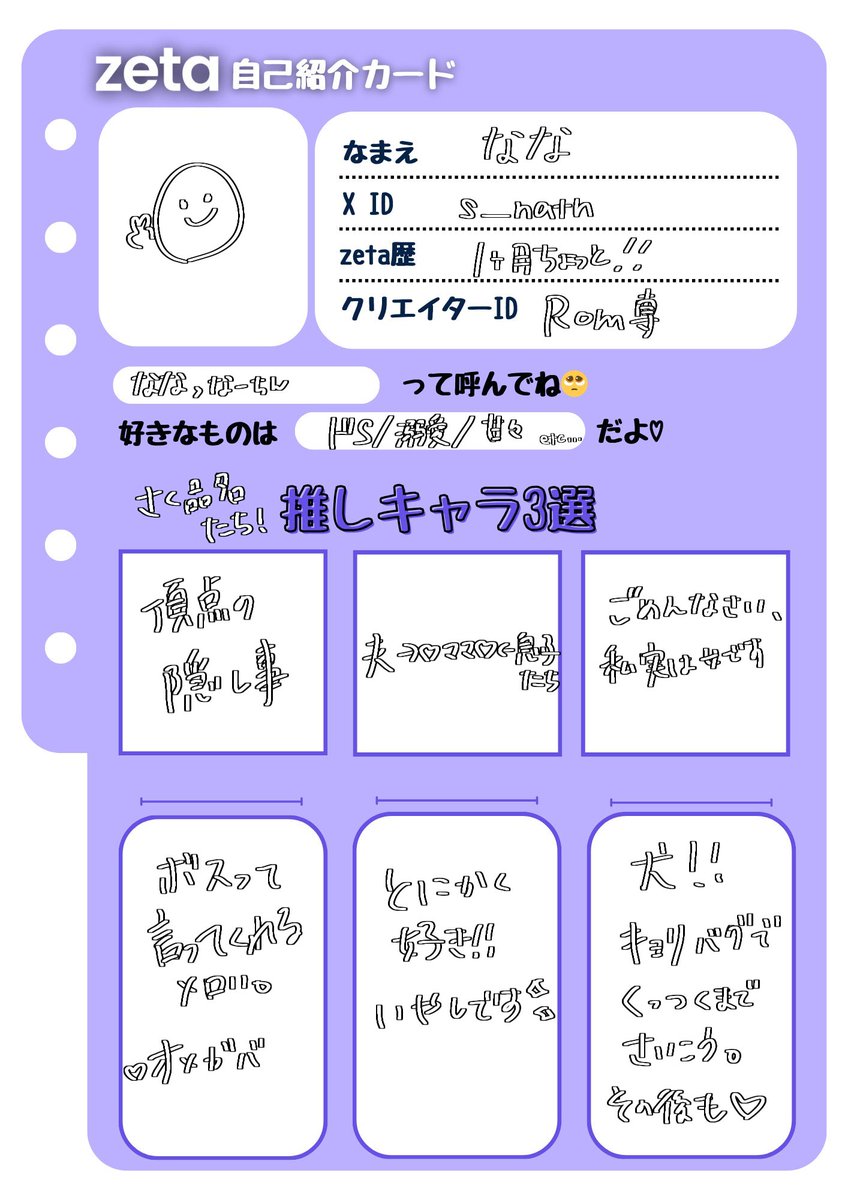 zeta 自己紹介カード
なまえ なな
X ID s_nath
zeta歴 1ヶ月ちょっと!!
クリエイターID Rom専
なな,なーちん って呼んでね🥺
好きなものは ドS/溺愛/甘々 etc... だよ♡
さく品名
たち! 推しキャラ3選
頂点の
隠し事
夫→♡ママ♡←息子
たち
ごめんなさい、
私実は女です
ボスって
言ってくれる
メロい。
♡オメガバ
とにかく
好き!!
いやしです
犬!!
キョリバグで
くっつくまで
さいこう。
その後も♡